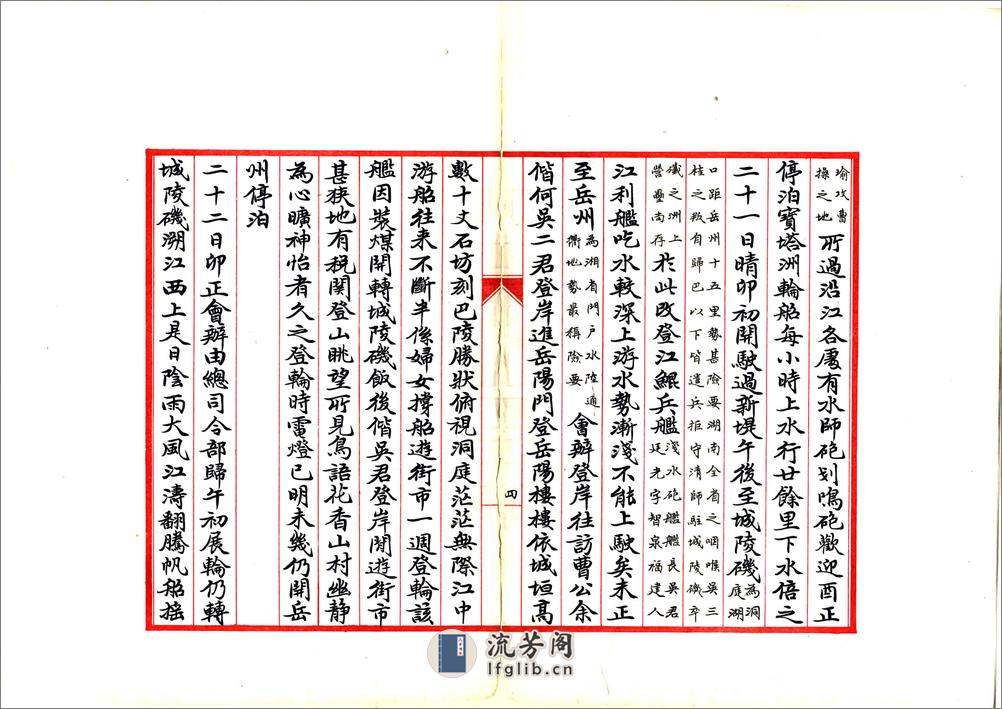 瑜攻曹操之地所過沿江各處有水師砲划鳴砲歡迎酉正
停泊寶塔洲輪船每小時上水行廿餘里下水倍之
二十一日晴卯初開駛過新堤午後至城陵磯為洞庭湖
口距岳州十五里勢甚險要湖南全省之咽喉吳三桂之叛自歸巴以下皆遣兵拒守清師駐城陵磯卒
磯之洲上營壘尚存於此改登江鯤兵艦淺水砲艦艦長吳君廷光字智泉福建人
江利艦吃水較深上游水勢漸淺不能上駛矣未正
至岳州為湘省門戶水陸通衢地勢最稱險要會辦登岸往訪曹公余
偕何吳二君登岸進岳陽門登岳陽樓樓依城垣高
四
數十丈石坊刻巴陵勝狀俯視洞庭茫茫無際江中
游船往來不斷半係婦女撐船遊街市一週登輪該
艦因裝煤開轉城陵磯飯後偕吳君登岸閒遊街市
甚狹地有稅関登山眺望所見鳥語花香山村幽静
為心曠神怡者久之登輪時雷燈已明未幾仍開岳
州停泊
二十二日卯正會辦由總司令部歸午初展輪仍轉
城陵磯溯江西上是日陰雨大風江濤翻騰帆船搖
流芳阁
lfglib.cn